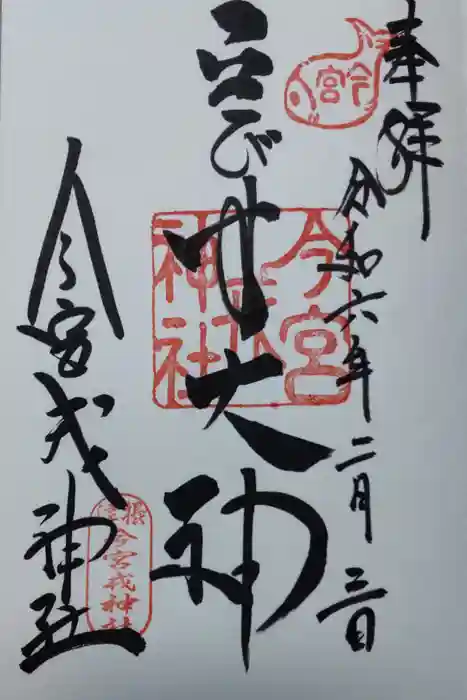 奉拝
今宮
令和六年二月三日
今宮戎神社
びす大神
今宮戎神社
摂津
今宮戎神社